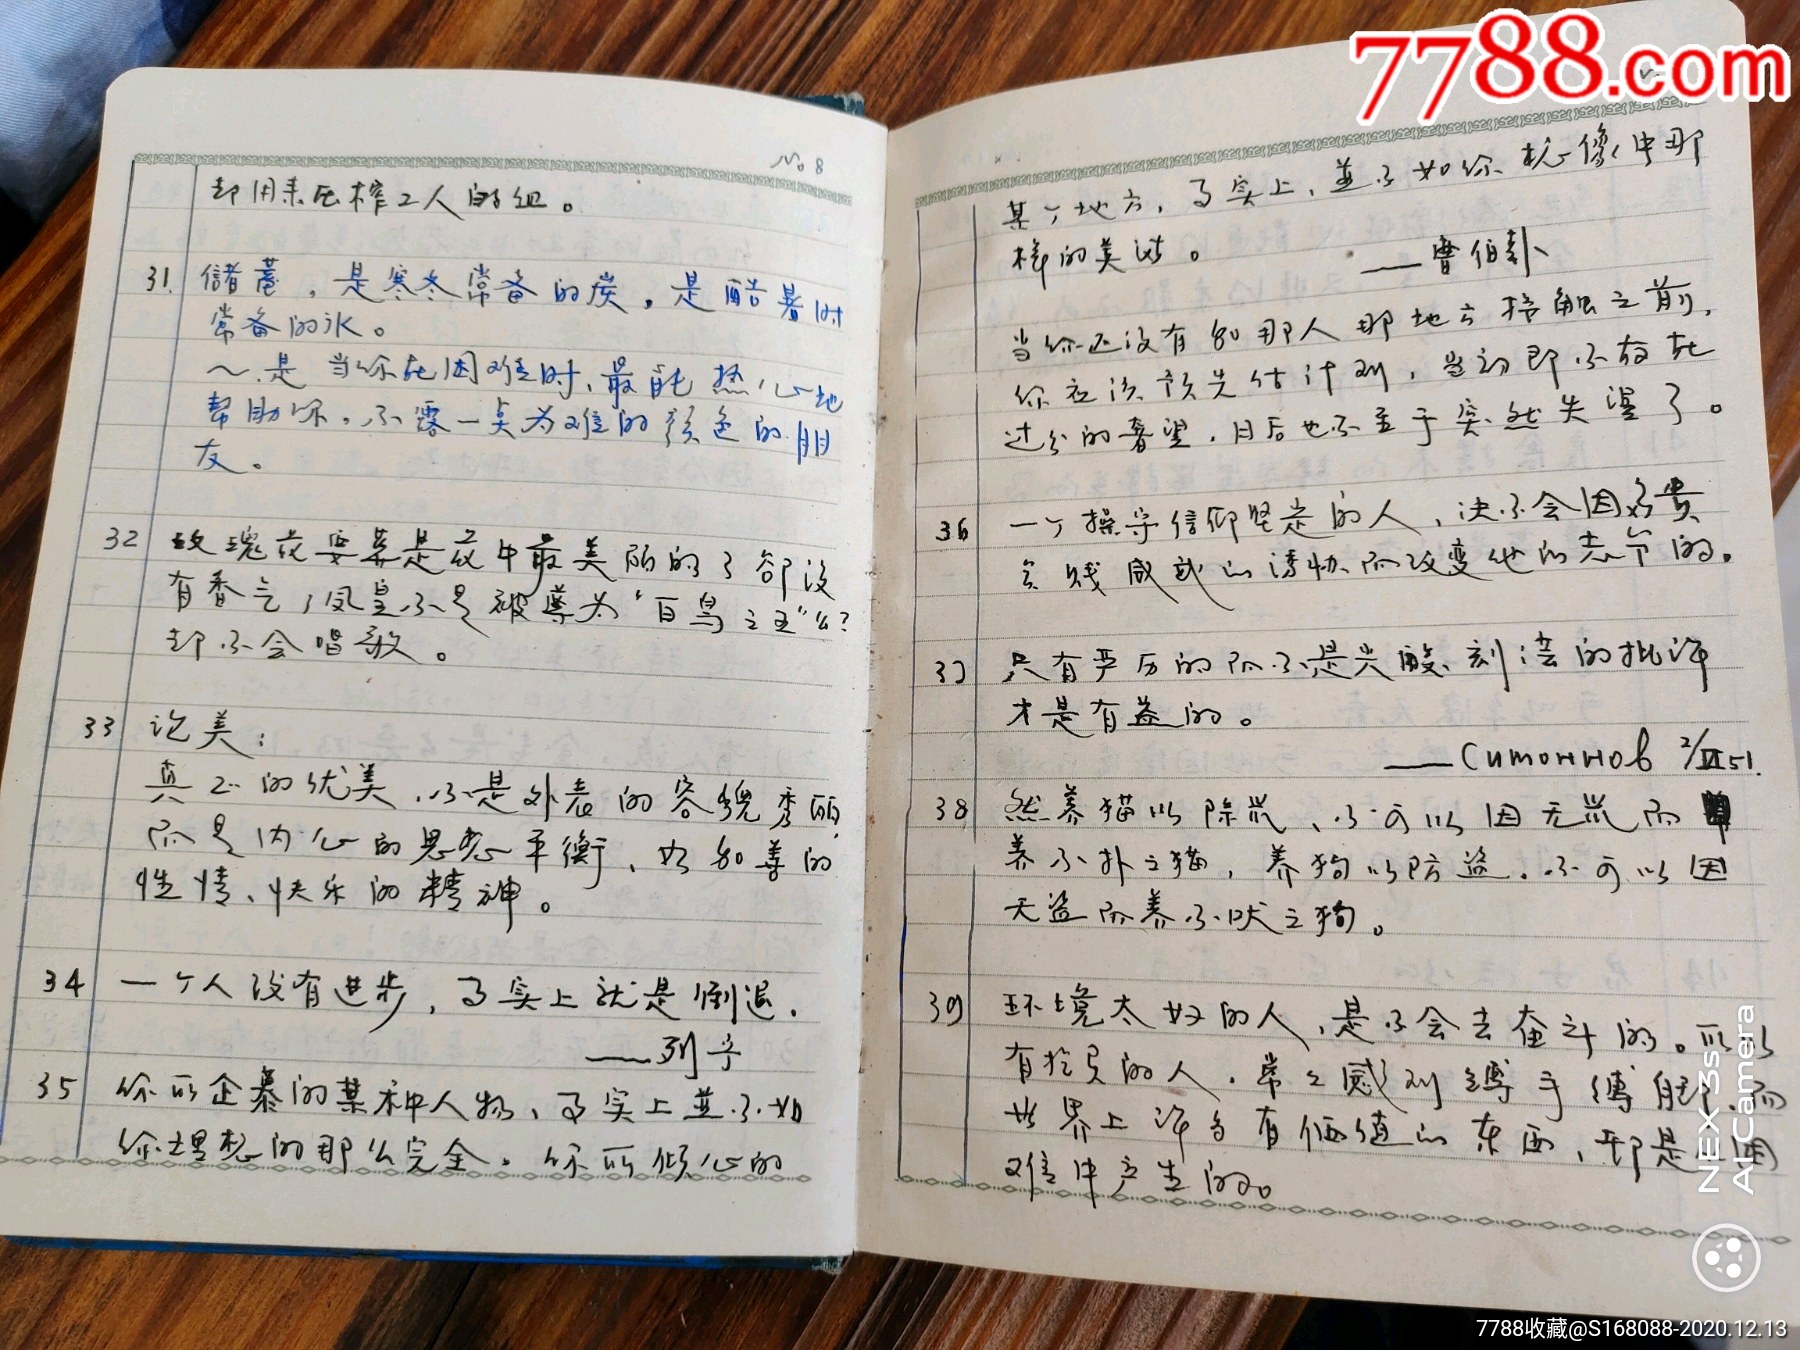 No 8
却用来压榨工人的组。
31. 儲蓄，是寒冬常备的炭，是酷暑时
常备的冰。
～是当你在困难时，最能热心地
帮助你，不露一点为难的颜色的朋
友。
32 玫瑰花要算是花中最美丽的了却没
有香气，凤皇不是被尊为“百鸟之王”么？
却不会唱歌。
33 论美：
真正的优美，不是外表的容貌秀丽，
而是内心的思想平衡，如和善的
性情、快乐的精神。
34 一个人没有进步，事实上就是倒退．
——列宁
35 你所企慕的某种人物，事实上並不如
你理想的那么完全。你所倾心的
某个地方，事实上，並不如你想像中那
样的美满。
——曹伯韩
当你还没有和那人那地方接触之前，
你应该预先估计到，当初即不存在
过分的奢望，日后也不至于突然失望了。
36 一个操守信仰坚定的人，决不会因富贵
贫贱威武的诱胁而改变他的志节的。
37 只有严历的而不是尖酸刻薄的批评
才是有益的。
——Симоннов 2/Ⅸ51.
38 然养猫以除鼠，不可以因无鼠而
养不扑之猫，养狗以防盗，不可以因
无盗而养不吠之狗。
39 环境太好的人，是不会去奋斗的。所以
有抱负的人，常々感到缚手缚脚，而
世界上许多有価值的东西，却是困
难中产生的。
7788.com
NEX 3s 5G
AI Camera
7788收藏@S168088-2020.12.13